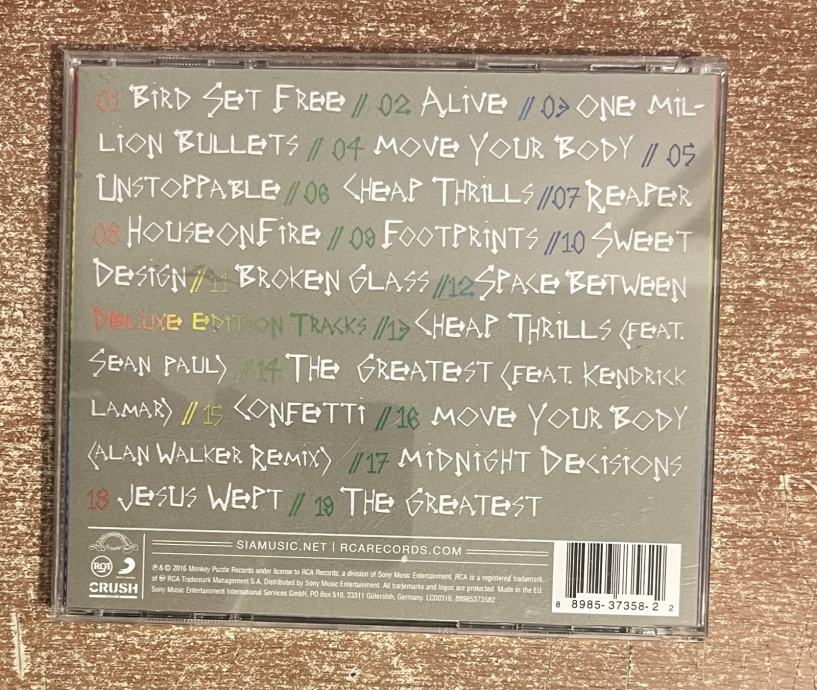 01 BIRD SET FREE // 02 ALIVE // 03 ONE MIL-
LION BULLETS // 04 MOVE YOUR BODY // 05
UNSTOPPABLE // 06 CHEAP THRILLS // 07 REAPER
08 HOUSE ON FIRE // 09 FOOTPRINTS // 10 SWEET
DESIGN // 11 BROKEN GLASS // 12 SPACE BETWEEN
DELUXE EDITION TRACKS // 13 CHEAP THRILLS (FEAT.
SEAN PAUL) // 14 THE GREATEST (FEAT. KENDRICK
LAMAR) // 15 CONFETTI // 16 MOVE YOUR BODY
(ALAN WALKER REMIX) // 17 MIDNIGHT DECISIONS
18 JESUS WEPT // 19 THE GREATEST
SIAMUSIC.NET | RCARECORDS.COM
RCA
CRUSH
℗ & © 2016 Monkey Puzzle Records under license to RCA Records, a division of Sony Music Entertainment. RCA is a registered trademark
of ® RCA Trademark Management S.A. Distributed by Sony Music Entertainment. All trademarks and logos are protected. Made in the EU.
Sony Music Entertainment International Services GmbH, PO Box 510, 33311 Gütersloh, Germany. LC00316. 88985373582
8 8985-37358-2 2